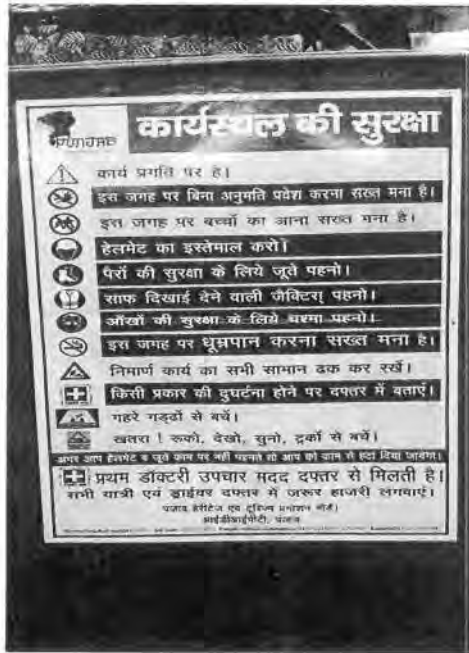 PUNJAB
कार्यस्थल की सुरक्षा
कार्य प्रगति पर है।
इस जगह पर बिना अनुमति प्रवेश करना सख्त मना है।
इस जगह पर बच्चों का आना सख्त मना है।
हेलमेट का इस्तेमाल करो।
पैरों की सुरक्षा के लिये जूते पहनो।
साफ दिखाई देने वाली जैक्टिस् पहनो।
आँखों की सुरक्षा के लिये चश्मा पहनो।
इस जगह पर धूम्रपान करना सख्त मना है।
निमार्ण कार्य का सभी सामान ढक कर रखें।
किसी प्रकार की दुघर्टना होने पर दफ्तर में बताएं।
गहरे गड्ढों से बचें।
खतरा ! रुको, देखो, सुनो, ट्रकों से बचें।
अगर आप हेलमेट व जूते काम पर नहीं पहनते तो आप को काम से हटा दिया जायेगा।
प्रथम डॉक्टरी उपचार मदद दफ्तर से मिलती है।
सभी यात्री एवं ड्राईवर दफ्तर में जरूर हाजरी लगवाएं।
पंजाब हेरीटेज एवं टूरिज्म प्रमोशन बोर्ड।
आईडीआईपीटी, पंजाब